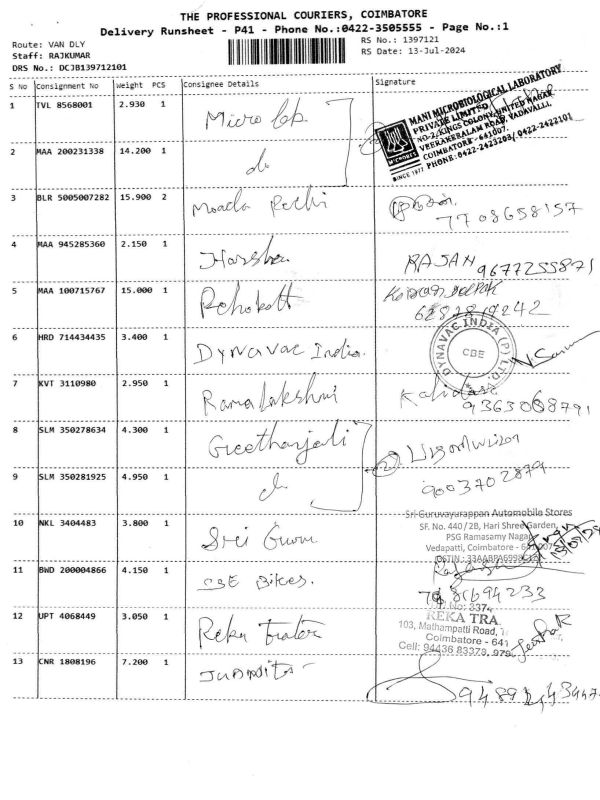 THE PROFESSIONAL COURIERS, COIMBATORE
Delivery Runsheet - P41 - Phone No.:0422-3505555 - Page No.:1
Route: VAN DLY
RS No.: 1397121
Staff: RAJKUMAR
RS Date: 13-Jul-2024
DRS No.: DCJB139712101
S No Consignment No Weight PCS Consignee Details Signature
1 TVL 8568001 2.930 1 Micro lab.
MANI MICROBIOLOGICAL LABORATORY
PRIVATE LIMITED
NO-2, KINGS COLONY, UNITED NAGAR
VEERAKERALAM ROAD, VADAVALLI,
COIMBATORE - 641007.
PHONE: 0422-2423203/ 0422-2422101
MICROMEX
SINCE 1977
2 MAA 200231338 14.200 1 do
3 BLR 5005007282 15.900 2
7708658157
4 MAA 945285360 2.150 1 RAJAN 9677255871
5 MAA 100715767 15.000 1
6282819242
6 HRD 714434435 3.400 1 Dynavac India.
DYNAVAC INDIA (P) LTD.
CBE
7 KVT 3110980 2.950 1 Rama Lakshmi Kalidass
9363068791
8 SLM 350278634 4.300 1 Geethanjali
9 SLM 350281925 4.950 1 do 9003702879
10 NKL 3404483 3.800 1 Sri Guru
Sri Guruvayurappan Automobile Stores
SF. No. 440/2B, Hari Shree Garden,
PSG Ramasamy Nagar,
Vedapatti, Coimbatore - 641007
11 BWD 200004866 4.150 1 CBE Bikes.
12 UPT 4068449 3.050 1
REKA TRA
103, Mathampatti Road,
Coimbatore - 641
Cell: 94436 83379, 979
13 CNR 1808196 7.200 1